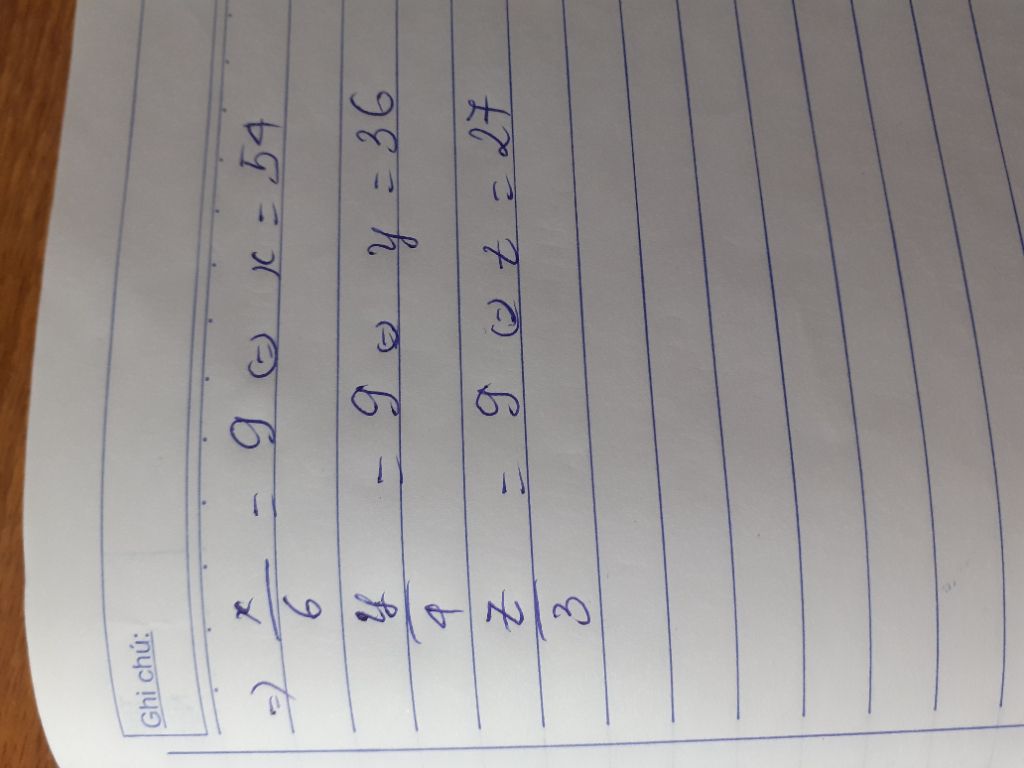 Ghi chú:
=) x/6 = 9 (=) x = 54
y/4 = 9 (=) y = 36
z/3 = 9 (=) z = 27